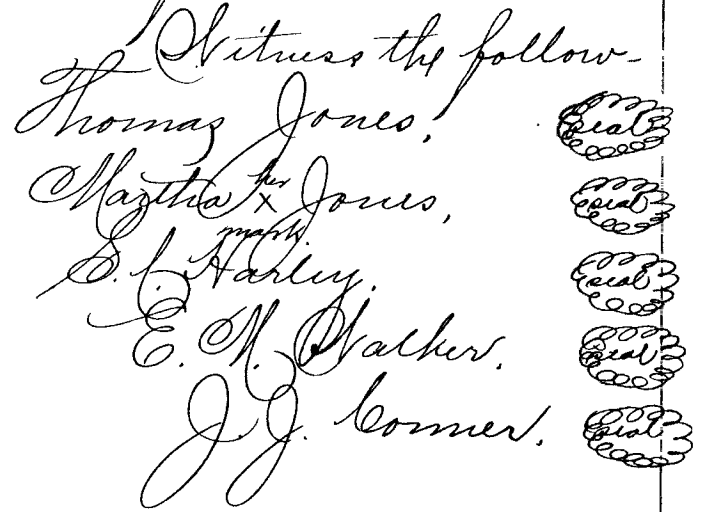 Witness the follow-
Thomas Jones, Seal
her
Martha x Jones, Seal
mark
E. C. Harley. Seal
E. W. Walker. Seal
J. J. Conner. Seal